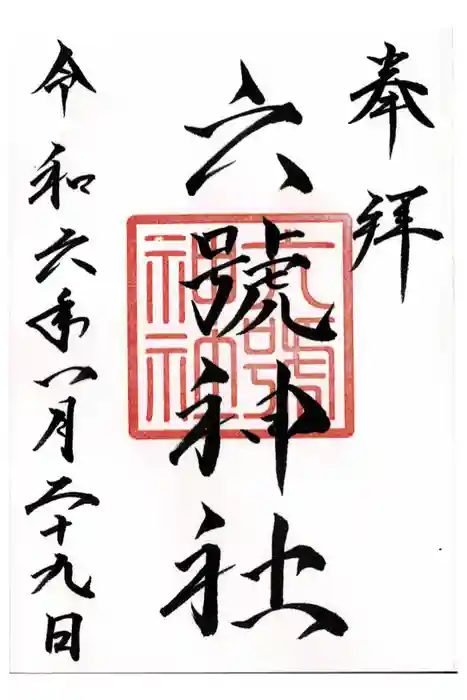 奉拝
六號神社
六號神社
令和六年八月二十九日